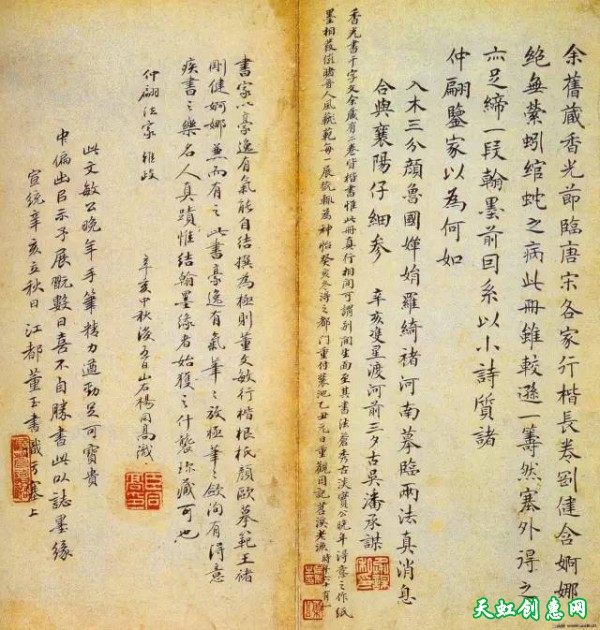 余舊藏香光節臨唐宋各家行楷長卷剛健含婀娜
絕無縈蚓綰蛇之病此冊雖較遜一籌然塞外得之
亦足締一段翰墨前因系以小詩質諸
仲翩鑒家以為何如
入木三分顏魯國嬋娟羅綺褚河南摹臨兩法真消息
合與襄陽仔細參
辛亥雙星渡河前三夕古吳潘承謀
香光書千字文余藏有二卷皆楷書惟此冊真行相間可謂別開生面至其書法蒼秀古淡實公晚年得意之作紙
墨相發展睹昔人風範每一展玩輒為神怡癸亥冬得之都門重付裝池乙丑元日重觀因記苕溪老漁時年六十有一
書家以豪逸有氣能自結撰為極則董文敏行楷根柢顏歐摹範王褚
剛健婀娜兼而有之此書豪逸有氣筆筆放極筆筆斂洵有得意
疾書之樂名人真蹟惟結翰墨緣者始獲之什襲珍藏可也
仲翩法家雅政
辛亥中秋後五日山右楊同高識
此文敏公晚年手筆精力遒勁足可寶貴
仲翩出以示予展翫數日喜不自勝書此以誌墨緣
宣統辛亥立秋日江都董玉書識于塞上
天虹创惠网